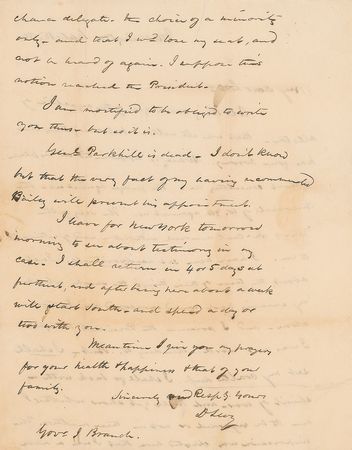 chance delegate. the choice of a minority
only - and that I wd lose my seat, and
not be heard of again. I suppose this
notion reached the President.
I am mortified to be obliged to write
you thus - but so it is.
Genl Parkhill is dead - I don't know
but that the very fact of my having recommended
Bailey will prevent his appointment.
I leave for New York tomorrow
morning to see about testimony in my
case. I shall return in 4 or 5 days at
furthest, and after being here about a week
will start South, and spend a day or
two with you.
Meantime I give you my prayers
for your health & happiness & that of your
family.
Sincerely and Respy Yours
D Levy
Govr J Branch.